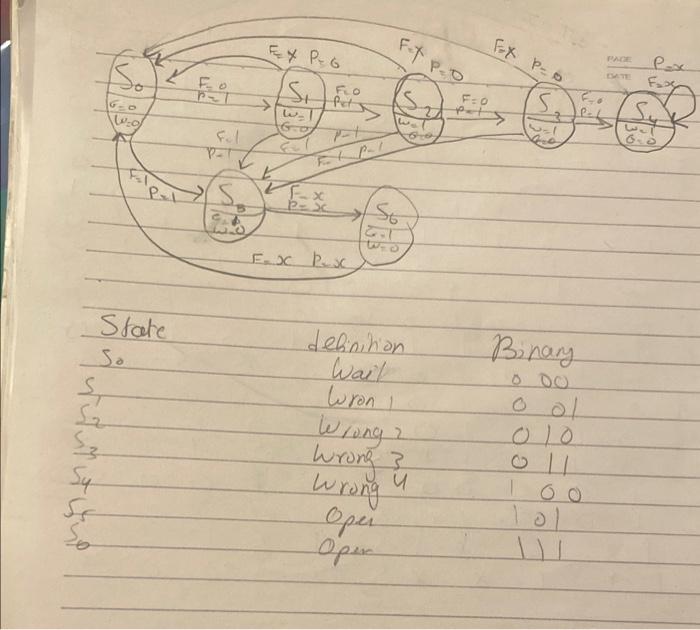 PAGE P=x
DATE F=x
F=x P=0
F=x P=0
F=x P=0
S0
G=0
W=0
F=0
P=1
S1
W=1
G=0
F=0
P=1
S2
W=1
G=0
F=0
P=1
S3
W=1
G=0
F=0
P=1
S4
W=1
G=0
F=1
P=1
F=1
P=1
F=1
P=1
F=1 P=1
S5
W=0
F=x
P=x
S6
G=1
W=0
F=x P=x
State definition Binary
S0 Wait 0 00
S1 Wron 1 0 01
S2 Wrong 2 010
S3 Wrong 3 011
S4 Wrong 4 1 00
S5 Open 101
S6 Open 111